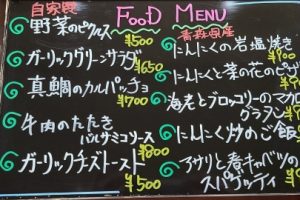 FOOD MENU
自家製
野菜のピクルス
¥500
ガーリックグリーンサラダ
¥650
真鯛のカルパッチョ
¥700
牛肉のたたき
バルサミコソース
¥800
ガーリックチーズトースト
¥500
青森県産
にんにくの岩塩焼き
にんにくと菜の花のピザ
海老とブロッコリーのマカロ
グラタン
にんにく炒めご飯
アサリと春キャベツの
スパゲッティ